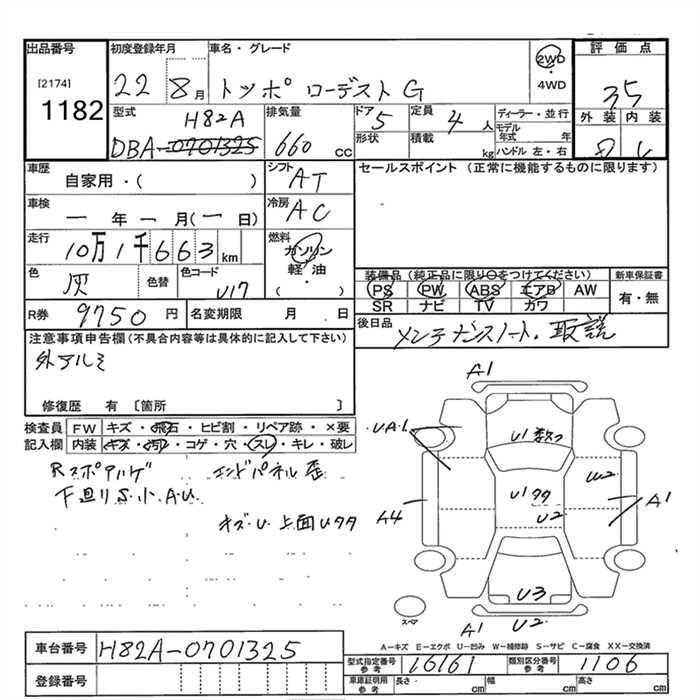 出品番号
[2174]
1182
初度登録年月
22 8月
車名・グレード
トッポ ローデスト G
2WD
・
4WD
評価点
3.5
外装 内装
型式
H82A
DBA-0701325
排気量
660 cc
ドア
5
形状
定員
4 人
積載
kg
ディーラー・並行
モデル年式 年
ハンドル 左・右
車歴
自家用・( )
シフト
AT
セールスポイント (正常に機能するものに限ります)
車検
一 年 一 月(一 日)
冷房
AC
走行
10万1千663km
燃料
ガソリン
軽油
・
( )
色
灰
色替
色コード
U17
装備品 (純正品に限り○をつけてください)
PS PW ABS エアB AW
SR ナビ TV カワ
新車保証書
有・無
R券
9750 円
名変期限 月 日
後日品
メンテナンスノート・取説
注意事項申告欄(不具合内容等は具体的に記入して下さい)
外アルミ
修復歴 有 〔箇所 〕
検査員記入欄
FW キズ・飛石・ヒビ割・リペア跡・×要
内装 キズ・汚れ・コゲ・穴・スレ・キレ・破レ
Rスポアルゲ エンドパネル歪
下廻りS.小.A.U
キズ・U 上面Uタタ
A1
UA.1
U1 数つ
U1タタ
U2
W2
A1
A4
U3
A1 U2
スペア
A-キズ E-エクボ U-凹み W-補修跡 S-サビ C-腐食 XX-交換済
車台番号
H82A-0701325
登録番号
型式指定番号
参考
16161
類別区分番号
参考
1106
車庫証明用
参考
長さ cm
幅 cm
高さ cm